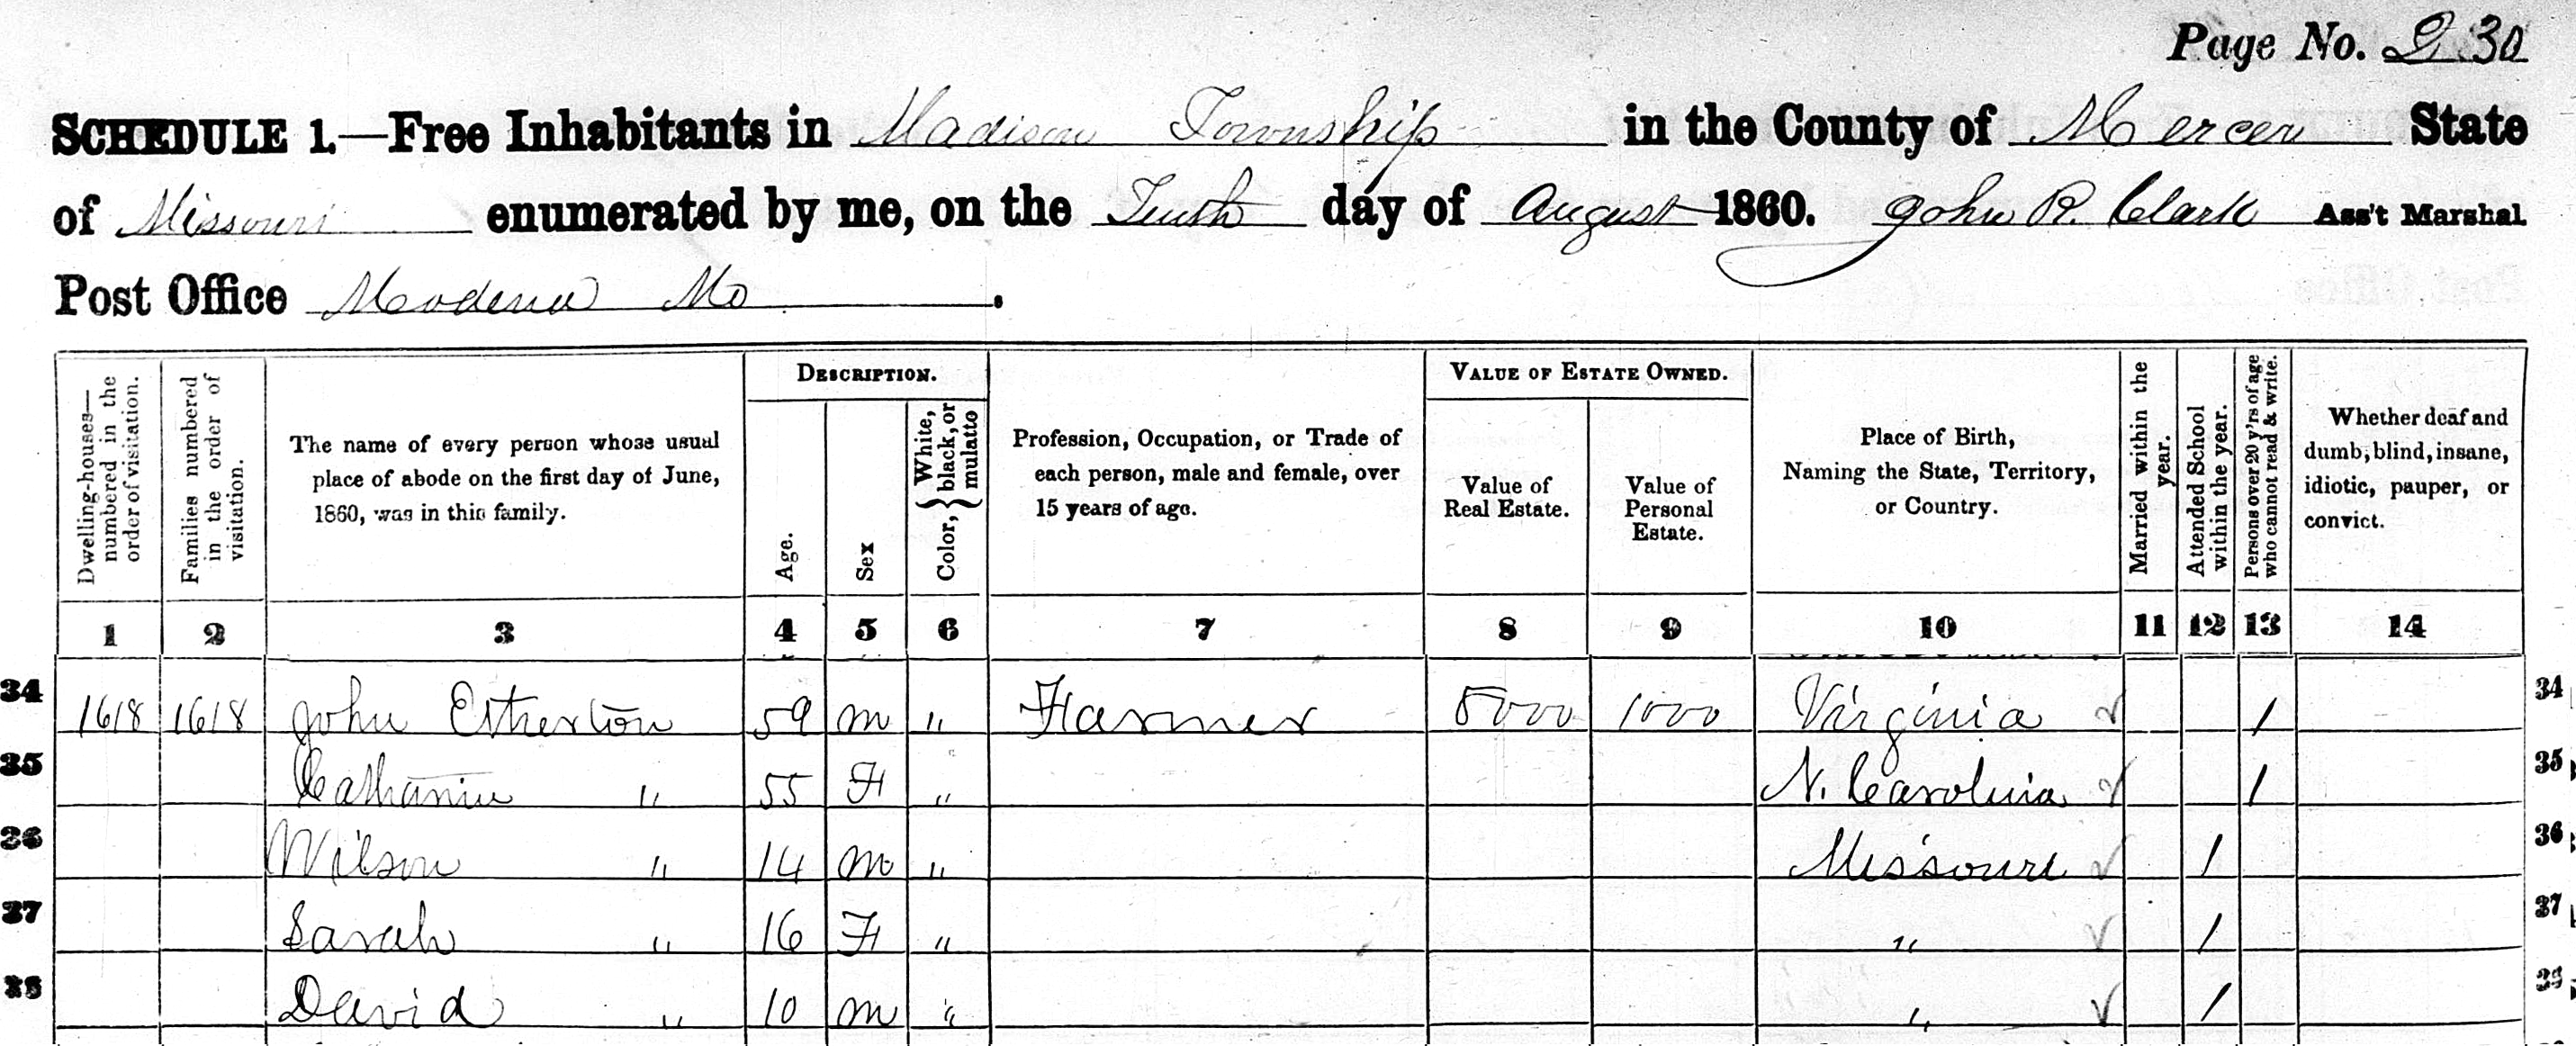 Page No. 230
SCHEDULE 1.—Free Inhabitants in Madison Township in the County of Mercer State
of Missouri enumerated by me, on the Tenth day of August 1860. John R. Clark Ass't Marshal
Post Office Modena Mo.
DESCRIPTION. VALUE OF ESTATE OWNED.
Dwelling-houses—numbered in the order of visitation. Families numbered in the order of visitation. The name of every person whose usual place of abode on the first day of June, 1860, was in this family. Age. Sex Color, { White, black, or mulatto Profession, Occupation, or Trade of each person, male and female, over 15 years of age. Value of Real Estate. Value of Personal Estate. Place of Birth, Naming the State, Territory, or Country. Married within the year. Attended School within the year. Persons over 20 y'rs of age who cannot read & write. Whether deaf and dumb, blind, insane, idiotic, pauper, or convict.
1 2 3 4 5 6 7 8 9 10 11 12 13 14
34 1618 1618 John Etherton 59 m " Farmer 5000 1000 Virginia ✓ / 34
35 Catharine " 55 F " N. Carolina ✓ / 35
36 Wilson " 14 m " Missouri ✓ / 36
37 Sarah " 16 F " " ✓ / 37
38 David " 10 m " " ✓ / 38